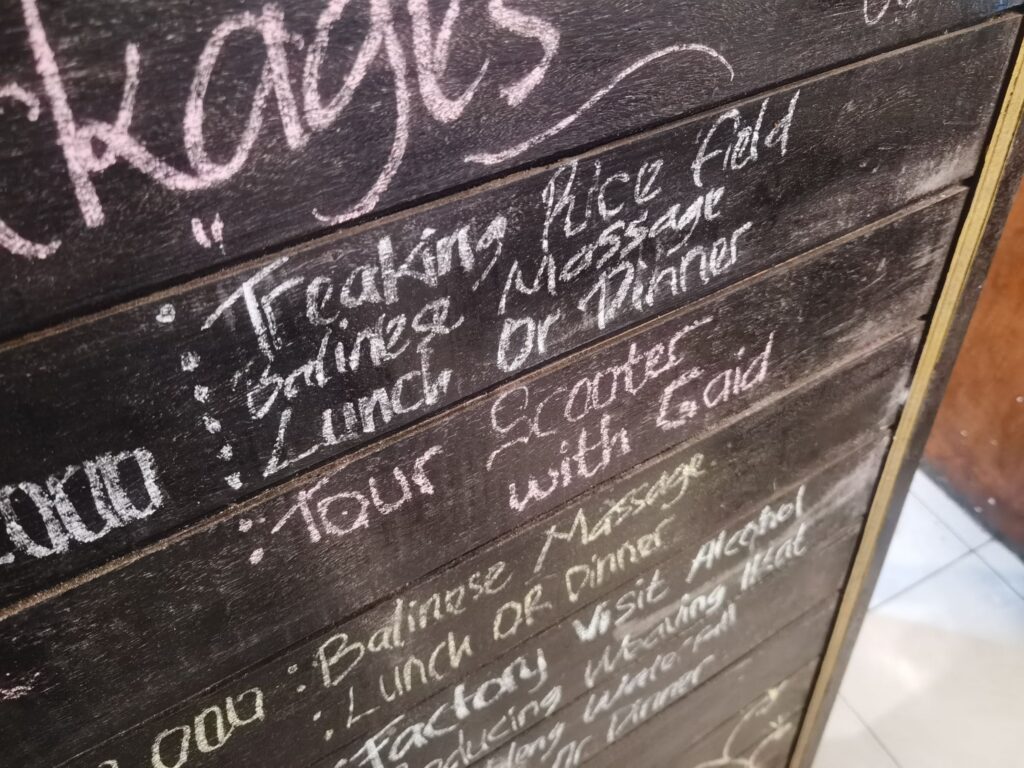 ckages
: Treaking Rice field
Balinese Massage
Lunch Or Dinner
.000
: Tour Scooter
with Gaid
: Balinese Massage
. Lunch OR Dinner
.000
. Factory Visit Alcohol
ducing Weaving
Water Fall
Or Dinner